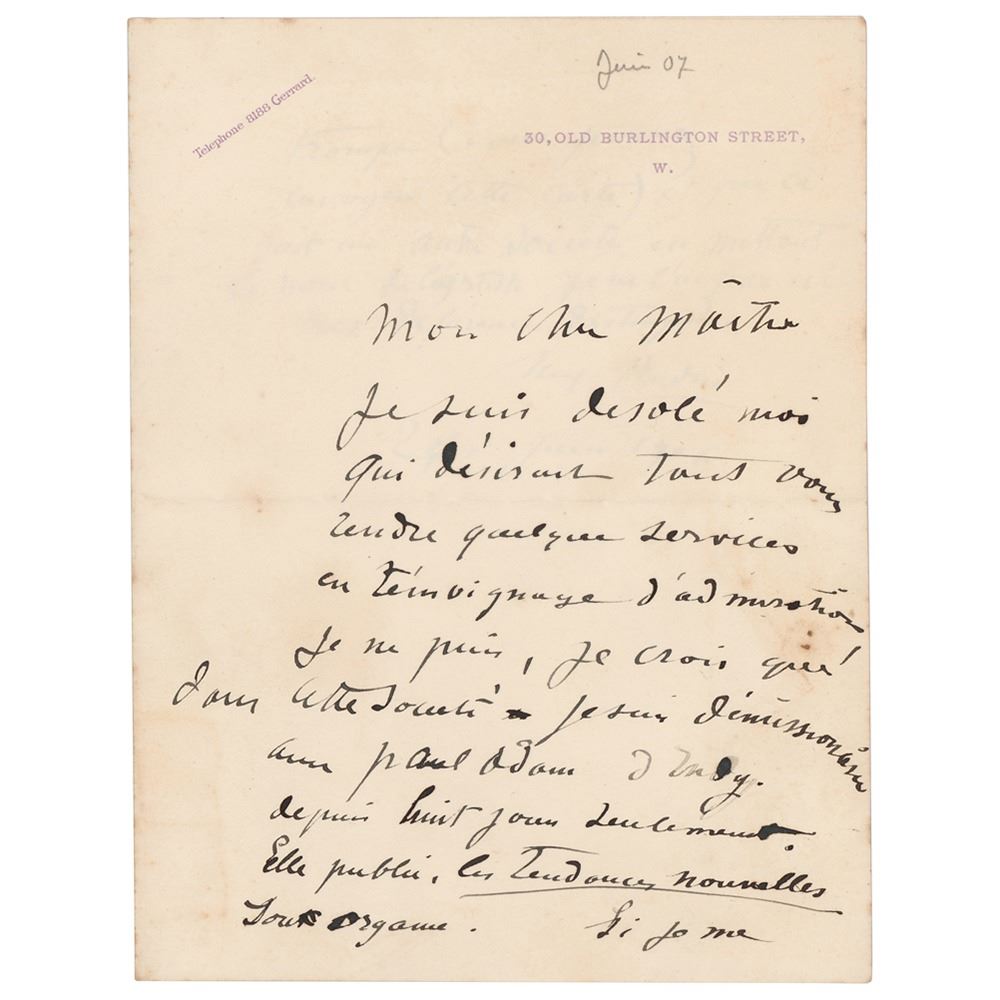 Juin 07
Telephone 8188 Gerrard.
30, OLD BURLINGTON STREET,
W.
Mon cher Maître
Je suis desolé moi
qui désirant tant vous
rendre quelque services
en témoignage d'admiration
Je ne puis, je crois que
dans cette Societé - Je suis démissionaire
avec paul Adam d'Indy.
depuis huit jours seulement.
Elle publie, les Tendances nouvelles
Son organe. Si je me